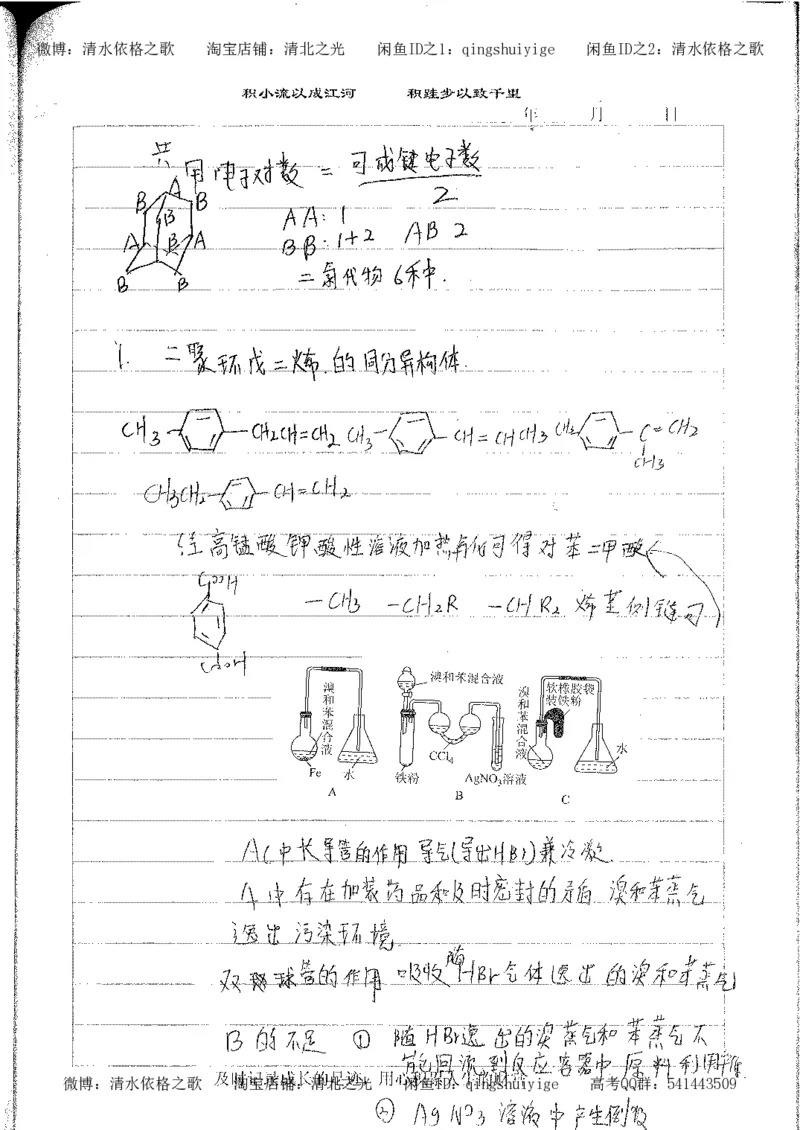 微博：清水依格之歌 淘宝店铺：清北之光 闲鱼ID之1：qingshuiyige 闲鱼ID之2：清水依格之歌
积小流以成江河 积跬步以致千里
年 月 日
共用电子对数 = 可成键电子数
2
A
B B
B
A B A
B B
AA: 1
BB: 1+2 AB 2
二氯代物 6种中.
1. 二聚环戊二烯.的同分异构体.
CH3- -CH2CH=CH2 CH3- -CH=CHCH3 CH3- -C=CH2
CH3
CH3CH2- -CH=CH2
高锰酸钾酸性溶液加热 可得对苯二甲酸
COOH
-CH3 -CH2R -CHR2
COOH
溴和苯混合液 Fe 水 A
溴和苯混合液 CCl4 铁粉 AgNO3溶液 B
溴和苯混合液 软橡胶袋装铁粉 水 C
AC中长导管的作用 导气(导出HBr)兼冷凝.
A中存在加装药品和及时密封的矛盾 溴和苯蒸气
逸出污染环境.
双球管的作用 吸收随HBr气体逸出的溴和苯蒸气
B的不足 ① 随HBr逸出的溴蒸气和苯蒸气不
能回流到反应容器中 原料利用率
及时记录成长的足迹
微博：清水依格之歌 淘宝店铺：清北之光 闲鱼ID：qingshuiyige 高考QQ群：541443509
② AgNO3溶液中产生倒吸